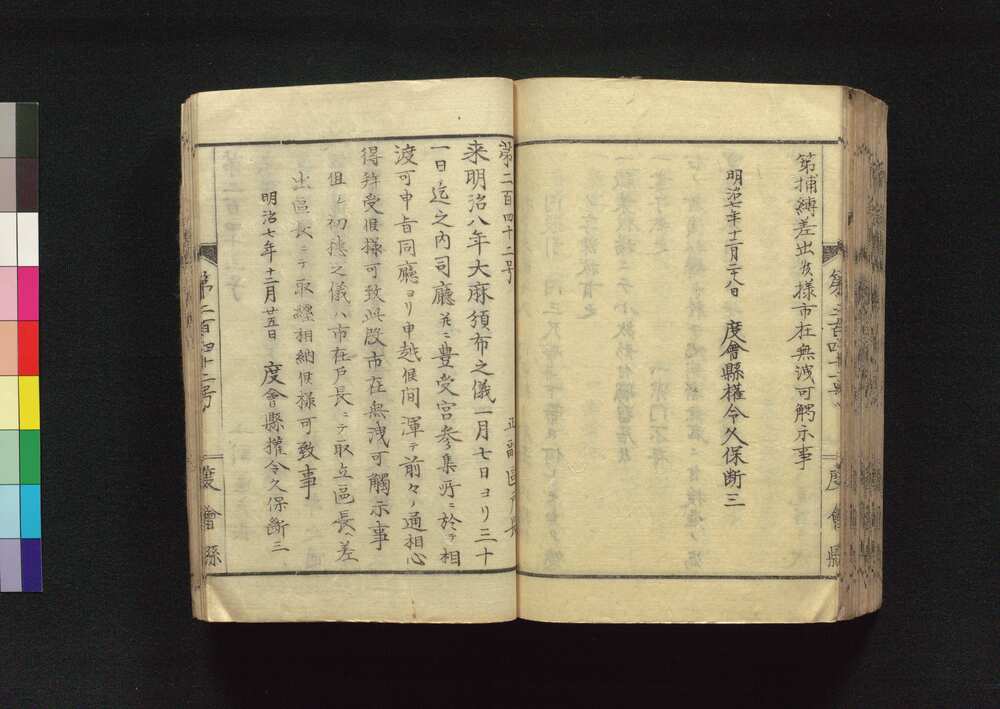 第捕縛差出候様市在無洩可觸示事
明治七年十二月廿八日　度會縣權令久保断三
第二百四十一号
度會縣
第二百四十二号
正副區戸長
来明治八年大麻頒布之儀一月七日ヨリ三十
一日迄之内司廳并ニ豊受宮参集所ニ於テ相
渡可申旨同廳ヨリ申越候間渾テ前々ノ通相心
得拜受候様可致此段市在無洩可觸示事
但シ初穂之儀ハ市在戸長ニテ取立區長ヘ差
出區長ニテ取纏相納候様可致事
明治七年十二月廿五日　度會縣權令久保断三
第二百四十二号
度會縣